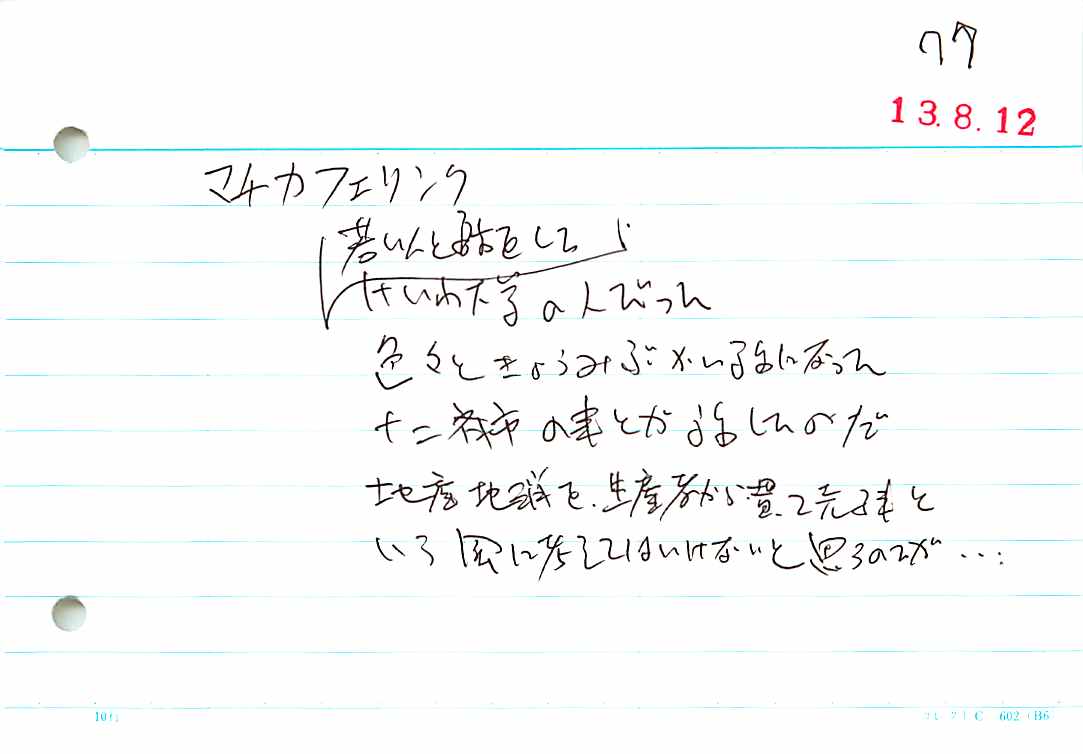 ワケ
13.8.12
マチカフェリンク
若い人と話をしてら
けいわ大学の人だって
色々ときょうみぶかいる話になって
十二斎市の事とか話してのだ
地産地消を、生産者から買って売る事と
いう風に考えてはいけないと思うのだが…:
10行
C 602 (B6